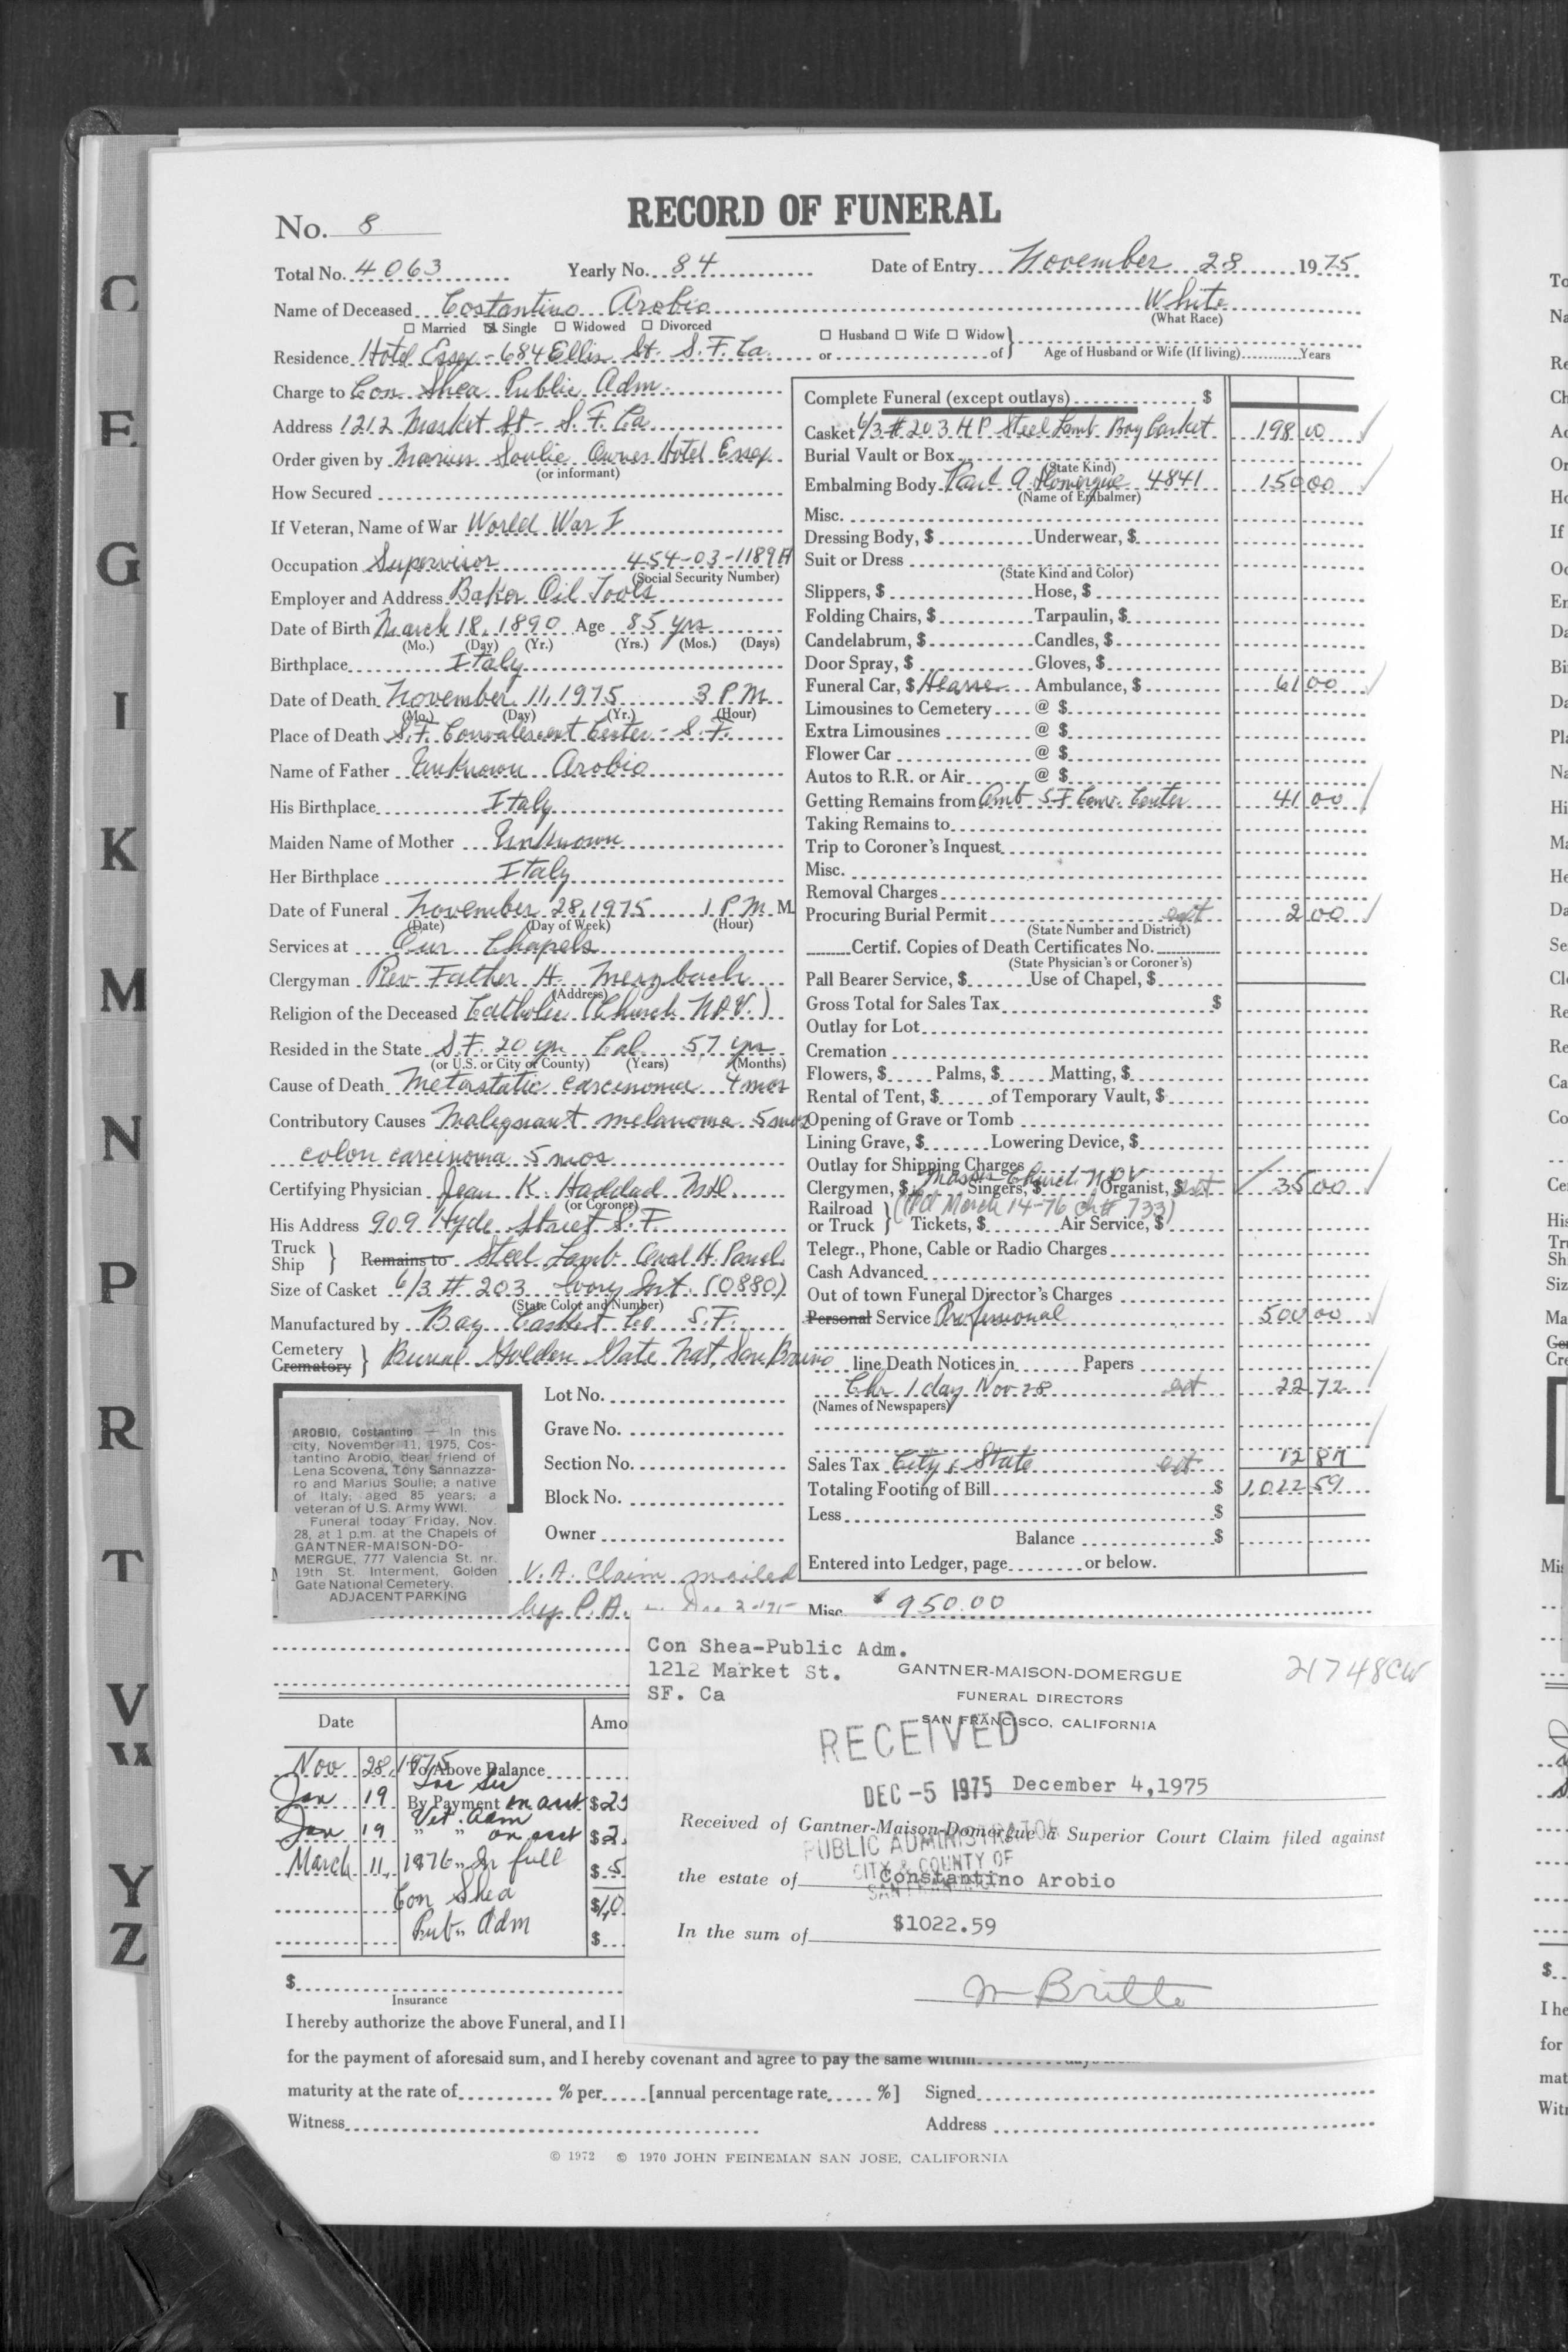 RECORD OF FUNERAL
No. 8
Total No. 4063 Yearly No. 84 Date of Entry November 28 1975
Name of Deceased Costantino Arobio White
(What Race)
☐ Married ☒ Single ☐ Widowed ☐ Divorced
☐ Husband ☐ Wife ☐ Widow
or of Age of Husband or Wife (If living) Years
Residence Hotel Essex - 684 Ellis St. S.F. Ca.
Charge to Con Shea Public Adm.
Address 1212 Market St - S.F. Ca
Order given by Marius Soulie Owner Hotel Essex
(or informant)
How Secured
If Veteran, Name of War World War I
Occupation Supervisor 454-03-1189A
(Social Security Number)
Employer and Address Baker Oil Tools
Date of Birth March 18, 1890 Age 85 yrs
(Mo.) (Day) (Yr.) (Yrs.) (Mos.) (Days)
Birthplace Italy
Date of Death November 11, 1975 3 P.M.
(Mo.) (Day) (Yr.) (Hour)
Place of Death S.F. Convalescent Center - S.F.
Name of Father Unknown Arobio
His Birthplace Italy
Maiden Name of Mother Unknown
Her Birthplace Italy
Date of Funeral November 28, 1975 1 P.M. M.
(Date) (Day of Week) (Hour)
Services at Our Chapels
Clergyman Rev Father H. Merzbach
(Address)
Religion of the Deceased Catholic (Church N.D.V.)
Resided in the State S.F. 20 yrs Cal 57 yrs
(or U.S. or City of County) (Years) (Months)
Cause of Death Metastatic carcinoma 4 mos
Contributory Causes Malignant melanoma 5 mos
colon carcinoma 5 mos
Certifying Physician Jean K. Haddad M.D.
(or Coroner)
His Address 909 Hyde Street S.F.
Truck
Ship Remains to Steel Lamb Oval H. Panel
Size of Casket 6/3 # 203 Ivory Int. (0880)
(State Color and Number)
Manufactured by Bay Casket Co S.F.
Cemetery
Crematory Burial Golden Gate Nat. San Bruno
Lot No.
Grave No.
Section No.
Block No.
Owner
AROBIO, Costantino — In this
city, November 11, 1975, Cos-
tantino Arobio, dear friend of
Lena Scovena, Tony Sannazza-
ro and Marius Soulie; a native
of Italy; aged 85 years; a
veteran of U.S. Army WWI.
Funeral today Friday, Nov.
28, at 1 p.m. at the Chapels of
GANTNER-MAISON-DO-
MERGUE, 777 Valencia St. nr.
19th St. Interment, Golden
Gate National Cemetery.
ADJACENT PARKING
V.A. Claim mailed
by P.A.
Complete Funeral (except outlays) $
Casket 6/3 # 203 H P Steel Lamb Bay Casket 198 00
Burial Vault or Box
(State Kind)
Embalming Body Paul A. Domergue 4841 150 00
(Name of Embalmer)
Misc.
Dressing Body, $ Underwear, $
Suit or Dress
(State Kind and Color)
Slippers, $ Hose, $
Folding Chairs, $ Tarpaulin, $
Candelabrum, $ Candles, $
Door Spray, $ Gloves, $
Funeral Car, $ Hearse Ambulance, $ 61 00
Limousines to Cemetery @ $
Extra Limousines @ $
Flower Car @ $
Autos to R.R. or Air @ $
Getting Remains from Amb S.F Conv. Center 41 00
Taking Remains to
Trip to Coroner's Inquest
Misc.
Removal Charges
Procuring Burial Permit 2 00
(State Number and District)
Certif. Copies of Death Certificates No.
(State Physician's or Coroner's)
Pall Bearer Service, $ Use of Chapel, $
Gross Total for Sales Tax $
Outlay for Lot
Cremation
Flowers, $ Palms, $ Matting, $
Rental of Tent, $ of Temporary Vault, $
Opening of Grave or Tomb
Lining Grave, $ Lowering Device, $
Outlay for Shipping Charges
Church N D V
Clergymen, $ Singers, $ Organist, $ 35 00
Railroad (Pd March 14-76 ch# 733)
or Truck Tickets, $ Air Service, $
Telegr., Phone, Cable or Radio Charges
Cash Advanced
Out of town Funeral Director's Charges
Personal Service Professional 500 00
line Death Notices in Papers
Chr 1 day Nov 28 22 72
(Names of Newspapers)
Sales Tax City & State 12 87
Totaling Footing of Bill $ 1,022 59
Less $
Balance $
Entered into Ledger, page or below.
Misc. $950.00
Con Shea-Public Adm.
1212 Market St.
SF. Ca
GANTNER-MAISON-DOMERGUE
FUNERAL DIRECTORS
SAN FRANCISCO, CALIFORNIA
21748CW
RECEIVED
DEC -5 1975
December 4, 1975
Received of Gantner-Maison-Domergue a Superior Court Claim filed against
PUBLIC ADMINISTRATOR
CITY & COUNTY OF
the estate of Constantino Arobio
In the sum of $1022.59
M Britto
Date Amo
Nov 28, 1975 To Above Balance
Soc Sec
Jan 19 By Payment on acct $2
Vet. Adm
Jan 19 " " on acct $2
March 11, 1976 " In full $5
Con Shea $1,0
Pub. Adm $
$
Insurance
I hereby authorize the above Funeral, and I
for the payment of aforesaid sum, and I hereby covenant and agree to pay the same within
maturity at the rate of % per [annual percentage rate %] Signed
Witness Address
© 1972 © 1970 JOHN FEINEMAN SAN JOSE, CALIFORNIA
C
E
G
I
K
M
N
P
R
T
V
W
Y
Z